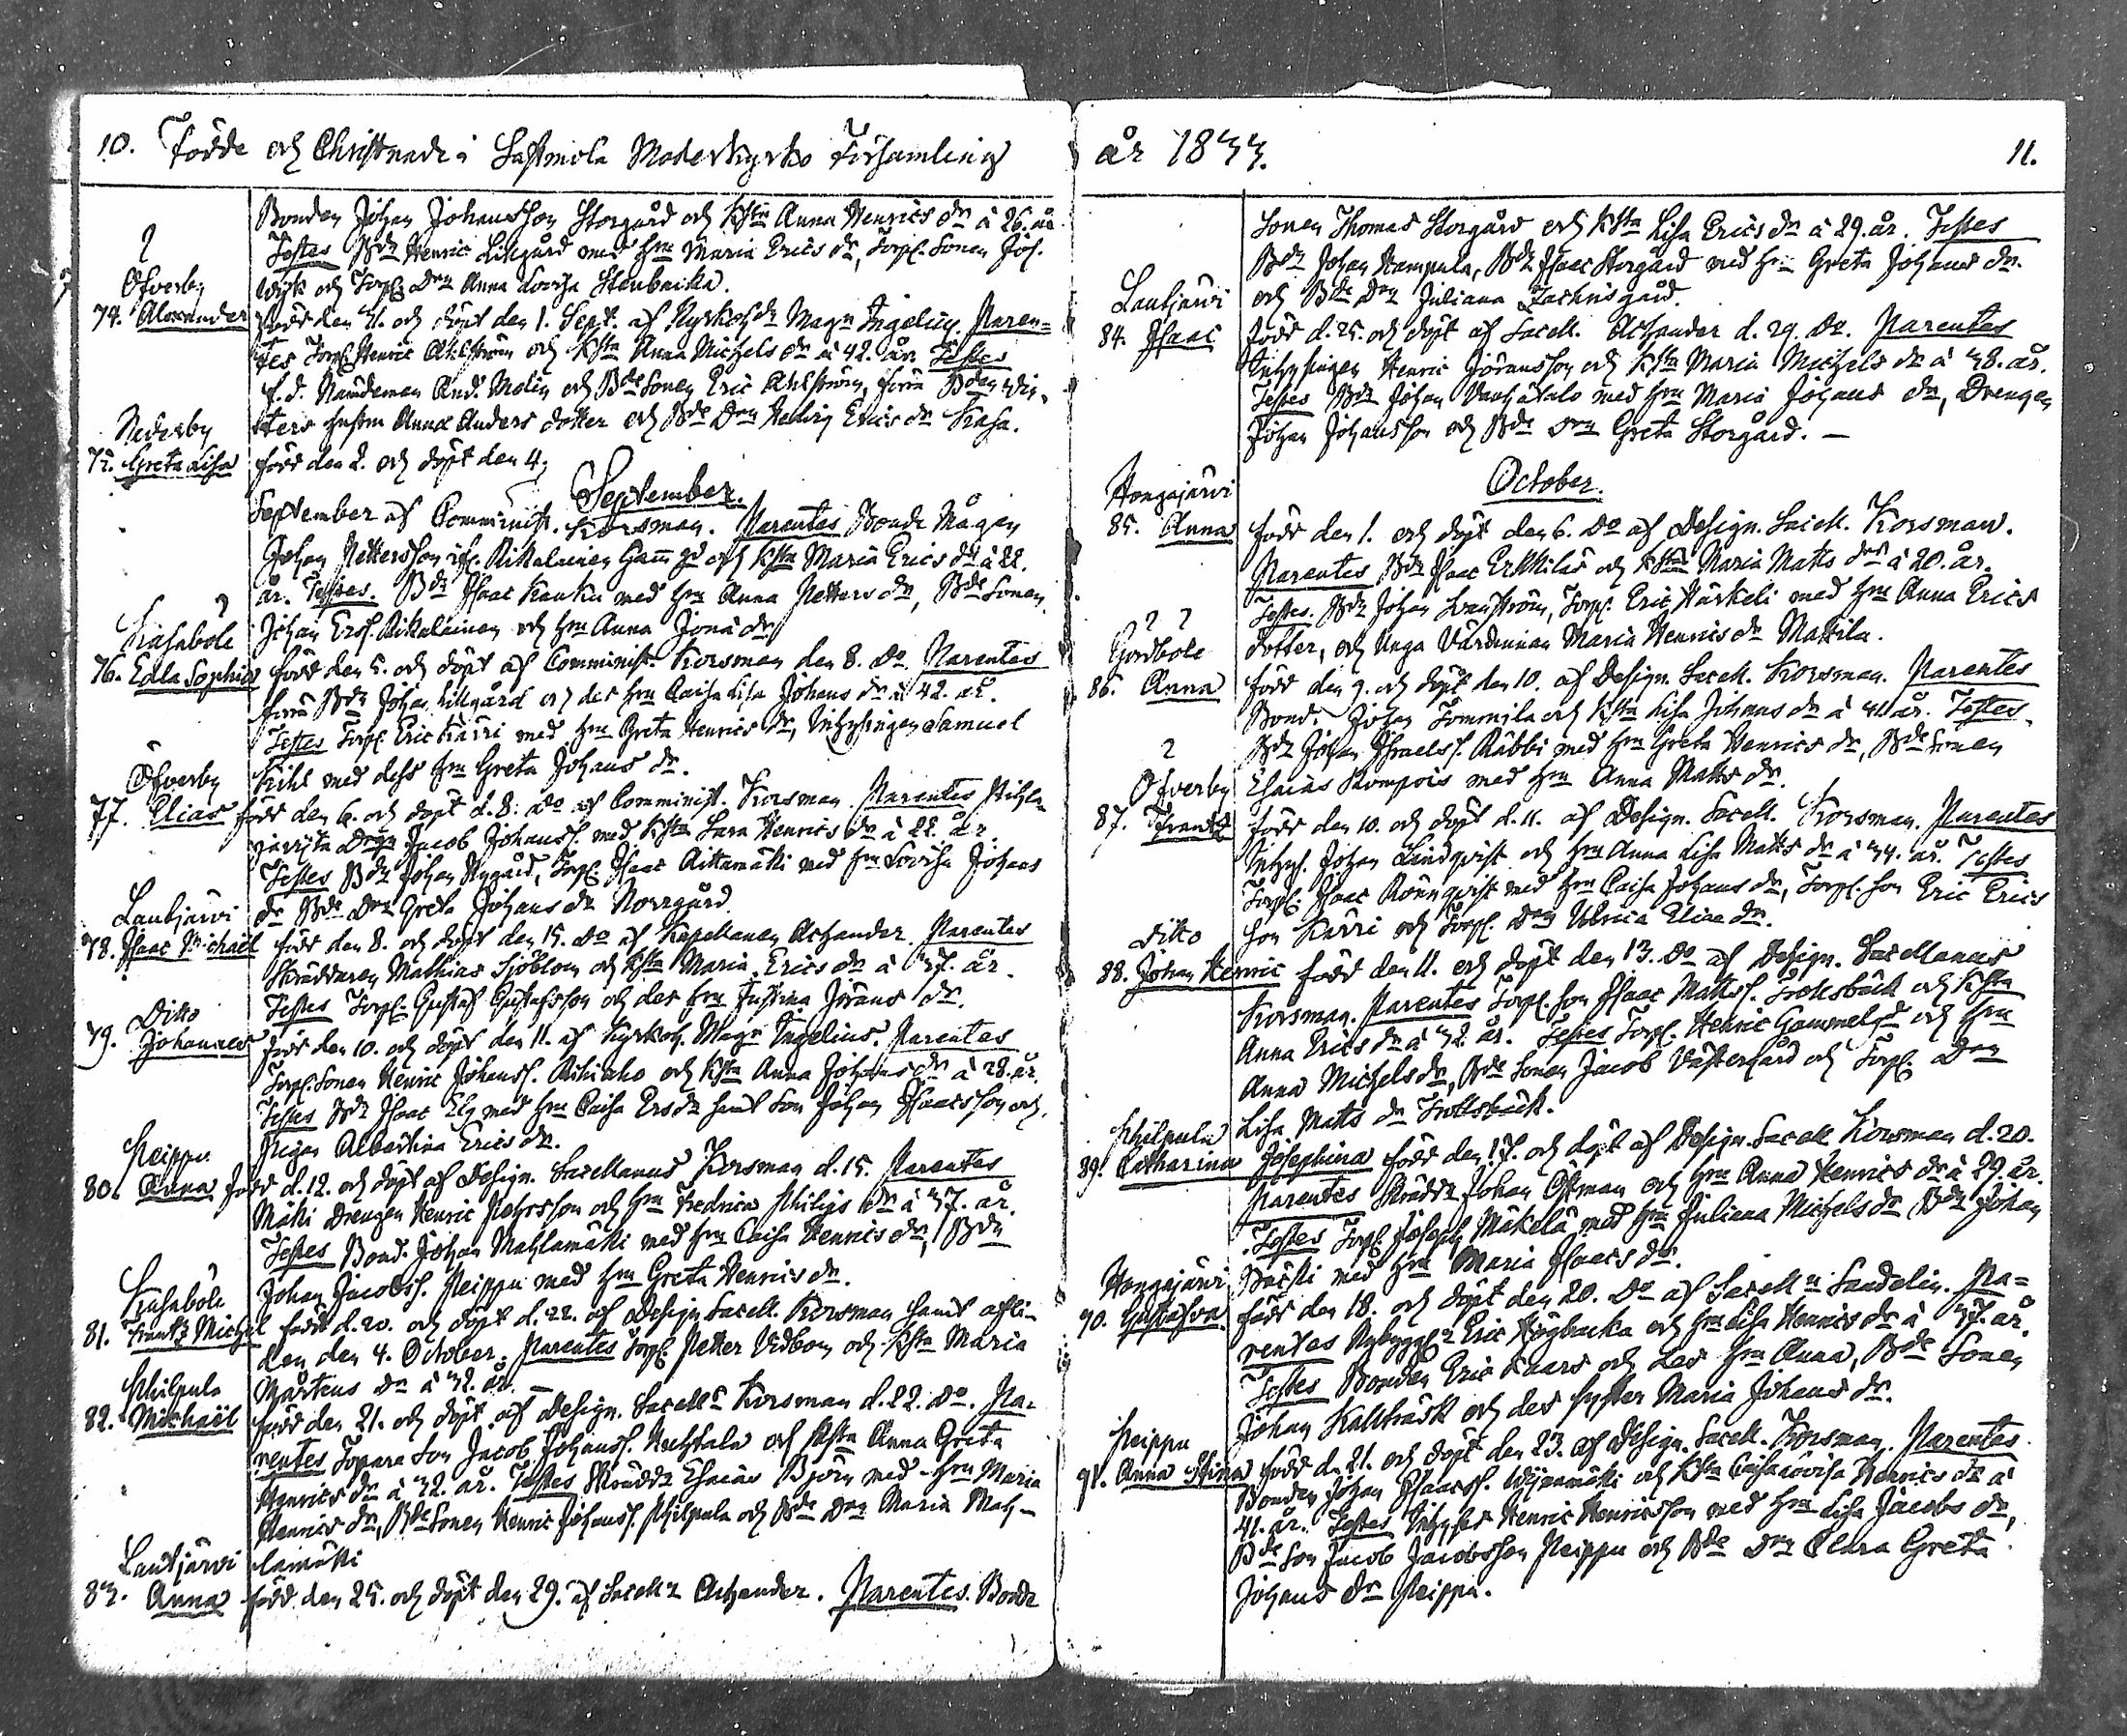 10. Födde och Christnade i Lappmola Moderkyrko Församling
Bonden Johan Johansson Storgård och hstn Anna Henrics dr à 26. år
Testes Bdn Henric Lillgård med hru Maria Erics dr, Torp. Sonen Joh.
och Torp. Drn Anna Lovisa Stenbacka.
Öfverby
74. Alexander född den 31. och döpt den 1. Sept. af Kyrkohdr Magr Ingelius. Paren-
tes Torp. Henric Ahlström och hstn Anna Michels dr à 42. år. Testes
f. d. Nämdeman And. Molin och Bde Sonen Eric Ahlström, förra Bden
hustru Anna Anders dotter och Bde Drn Hedvig Erics dr Kasa.
Nederby
75. Greta Lisa född den 2. och döpt den 4.
September.
September af Comminist. Korsman. Parentes Bonde Mågen
Johan Pettersson Rikalainen och hstn Maria Erics dr à 22.
år. Testes. Bdn Isaac Kanku med hru Anna Petters dr, Bde Sonen
Johan Ersf. Rikalainen och hru Anna Jona dr
Kasaböle
76. Edla Sophia född den 5. och döpt af Comminist. Korsman den 8. do. Parentes
förra Bdn Johan Lillgård och des hru Caisa Lisa Johans dr à 42. år.
Testes Torp. Eric Karri med hru Greta Henrics dr, Inhysingen Samuel
med dess hru Greta Johans dr.
Öfverby
77. Elias född den 6. och döpt d. 8. do af Comminist. Korsman. Parentes
Drgn Jacob Johanss. med hstn Sara Henrics dr à 22. år.
Testes Bdn Johan Nygård, Torp. Isaac Aittamäki med hru Lovisa Johans
dr Bde Drn Greta Johans dr Norrgård
Lautjärvi
78. Isaac Michaël född den 8. och döpt den 15. do af Kapellanen Achander. Parentes
Skräddaren Mathias Sjöblom och hstn Maria Erics dr à 37. år.
Testes Torp. Gustaf Gustafsson och des hru Justina Jörans dr.
Ditto
79. Johannes född den 10. och döpt den 11. af Kyrkoh. Magr Ingelius. Parentes
Torp. Sonen Henric Johanss. Rihiaho och hstn Anna Johans dr à 28. år.
Testes Bdn Isaac Elg med hru Caisa Ers dr samt Son Johan Isacsson och
Pigan Albertina Erics dr.
Peippu
80. Anna född d. 12. och döpt af Design. Sacellanus Korsman d. 15. Parentes
Mäki Drengen Henric Pehrsson och hru Fredrica Philips dr à 37. år.
Testes Bond. Johan Mahlamäki med hru Caisa Henrics dr, Bdn
Johan Jacobss. Peippu med hru Greta Henrics dr.
Kasaböle
81. Frants Michel född d. 20. och döpt d. 22. af Design. Sacell. Korsman samt afli-
den den 4. October. Parentes Torp. Petter Vidbom och hstn Maria
Mårtens dr à 32. år. —
Philpula
82. Michaël född den 21. och döpt af Design. Sacell. Korsman d. 22. do. Pa-
rentes Torpare Son Jacob Johanss. Huhtala och hstn Anna Greta
Henrics dr à 32. år. Testes Skräddr Esaias Björn med hru Maria
Henrics dr, Bde Sonen Henric Johanss. Philpula och Bde Drn Maria Mah-
lamäki
Lautjärvi
83. Anna född den 25. och döpt den 29. af Sacellr Achander. Parentes. Bonde
år 1833. 11.
Sonen Thomas Storgård och hstn Lisa Erics dr à 29. år. Testes
Bdn Johan Kampula, Bdn Isaac Storgård med hru Greta Johans dr.
och Bde Drn Juliana Zachrisgård.
Lautjärvi
84. Isaac född d. 25. och döpt af Sacell. Achander d. 29. do. Parentes
Inhysingen Henric Jöransson och hstn Maria Michels dr à 38. år.
Testes Bdn Johan Vanhatalo med hru Maria Johans dr, Drengen
Johan Johansson och Bde Drn Greta Storgård. —
October.
Hongajärvi
85. Anna född den 1. och döpt den 6. do af Design. Sacell. Korsman.
Parentes Bdn Isaac Erkkilä och hstn Maria Matts dr à 20. år.
Testes. Bdn Johan Lvanström, Torp. Eric Härkeli med hru Anna Erics
dotter, och Unga Värdinnan Maria Henrics dr Mattila.
Gördbole
86. Anna född den 9. och döpt den 10. af Design. Sacell. Korsman. Parentes
Bond. Johan Tommila och hstn Lisa Johans dr à 41 år. Testes
Bdn Johan Israelss. Räbbi med hru Greta Henrics dr, Bde Sonen
Esaias Rompois med hru Anna Matts dr.
Öfverby
87. Frants född den 10. och döpt d. 11. af Design. Sacell. Korsman. Parentes
Inhys. Johan Lindqvist och hru Anna Lisa Matts dr à 34. år. Testes
Torp. Isaac Rönnqvist med hru Caisa Johans dr, Torp. Son Eric Erics
son Karri och Torp. Drn Ulrica Elisa dr.
Ditto
88. Johan Henric född den 11. och döpt den 13. do af Design. Sacellanus
Korsman. Parentes Torp. Son Isaac Mattss. Trollsbäck och hstn
Anna Erics dr à 32. år. Testes Torp. Henric Gammelgd och hru
Anna Michels dr, Bde Sonen Jacob Västergård och Torp. Drn
Lisa Matts dr Trollsbäck.
Philpula
89. Catharina Josephina född den 17. och döpt af Design. Sacell Korsman d. 20.
Parentes Skräddr Johan Östman och hru Anna Henrics dr à 29. år.
Testes Torp. Joseph Mäkelä med hru Juliana Michels dr, Bdn Johan
Bäcki med hru Maria Isaacs dr.
Hongajärvi
90. Gustafva född den 18. och döpt den 20. do af Sacell. Sandelin. Pa-
rentes Nybyggr Eric Högbacka och hru Lisa Henrics dr à 37. år.
Testes Bonden Eric Kaars och des hru Anna, Bde Sonen
Johan Kallträsk och des syster Maria Johans dr.
Peippu
91. Anna Stina född d. 21. och döpt den 23. af Design. Sacell. Korsman. Parentes
Bonden Johan Isaacss. Wijnamäki och hstn Caisa Lovisa Henrics dr à
41. år. Testes Inhyses Henric Henricsson med hru Lisa Jacobs dr,
Bde Son Jacob Jacobsson Peippu och Bde Drn Clara Greta
Johans dr Peippu.